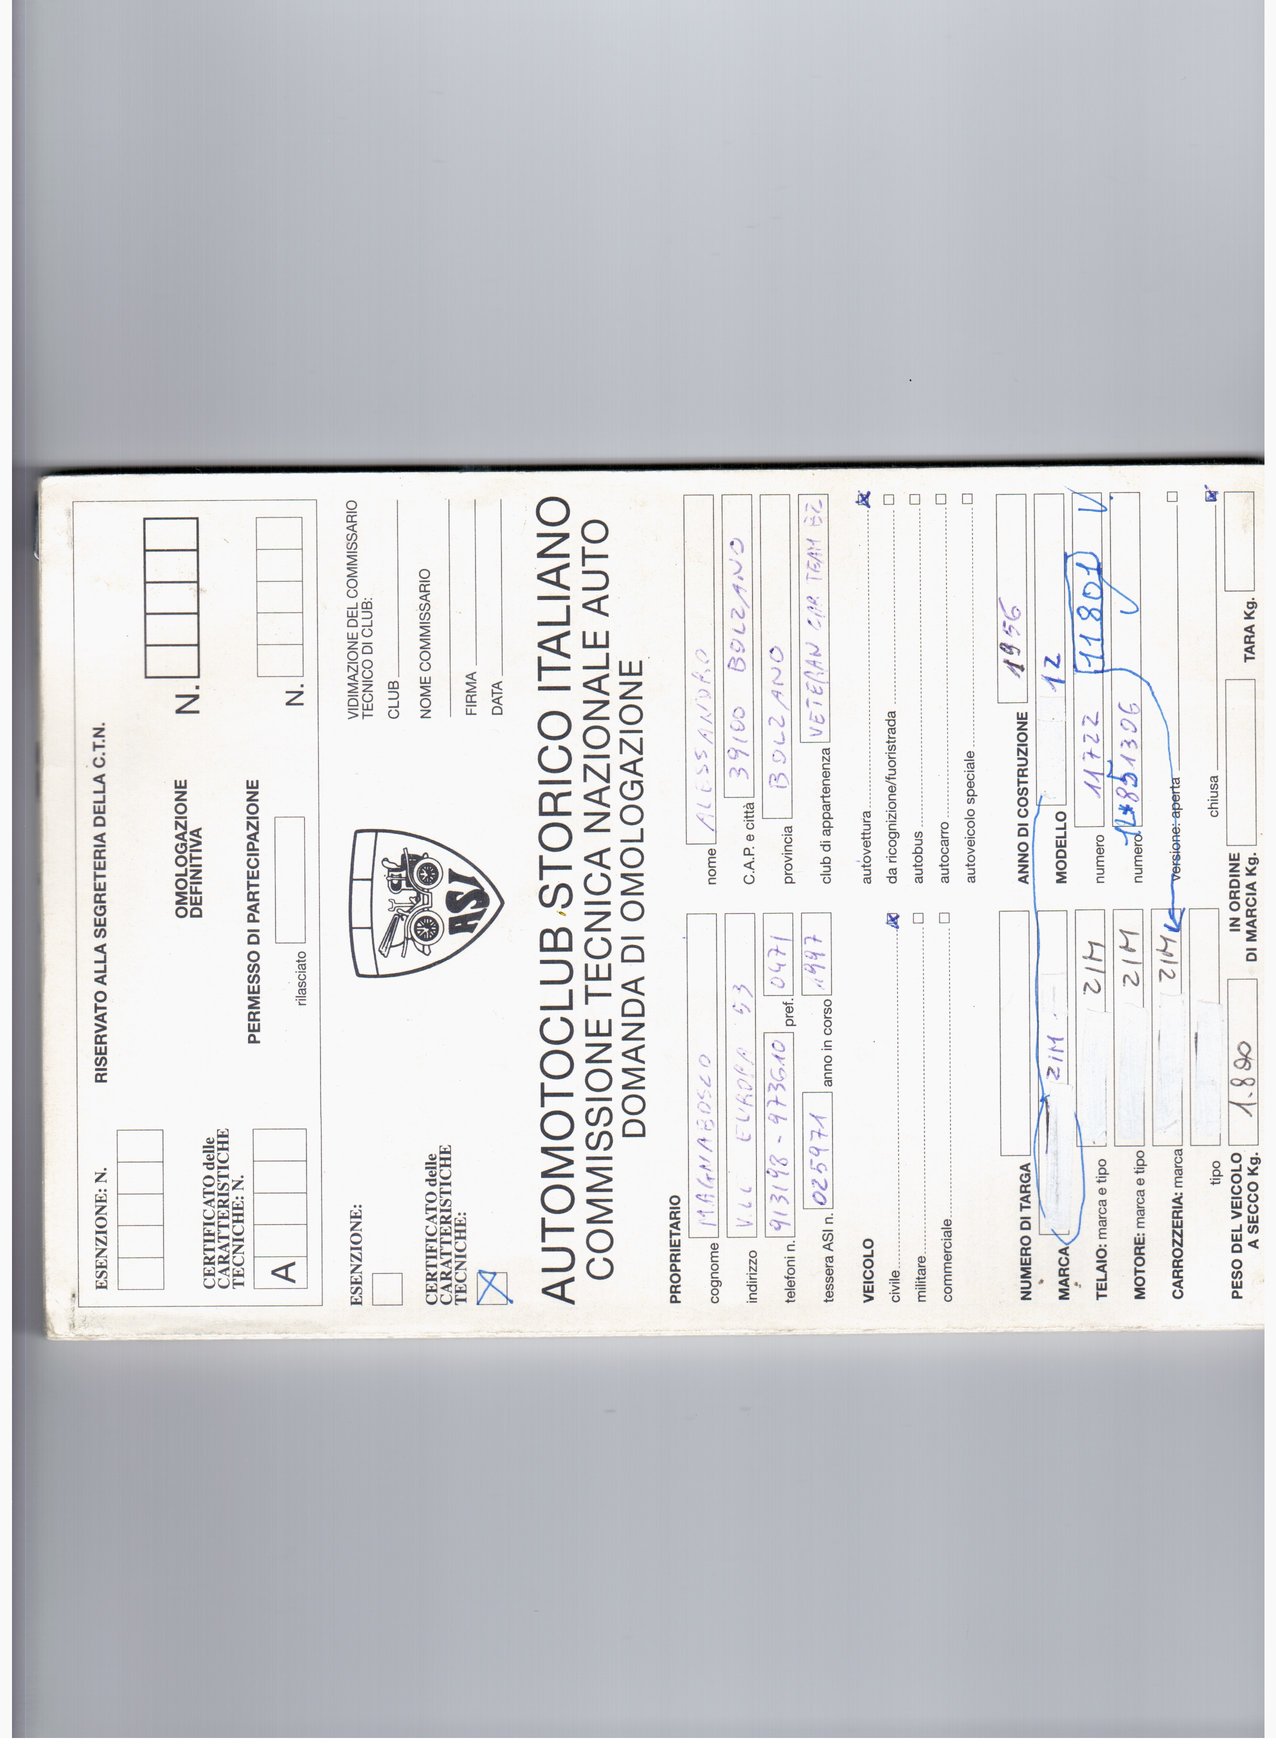 RISERVATO ALLA SEGRETERIA DELLA C.T.N.
ESENZIONE: N.
OMOLOGAZIONE
DEFINITIVA
N.
CERTIFICATO delle
CARATTERISTICHE
TECNICHE: N.
A
PERMESSO DI PARTECIPAZIONE
rilasciato
N.
ESENZIONE:
CERTIFICATO delle
CARATTERISTICHE
TECNICHE:
ASI
VIDIMAZIONE DEL COMMISSARIO
TECNICO DI CLUB:
CLUB
NOME COMMISSARIO
FIRMA
DATA
AUTOMOTOCLUB STORICO ITALIANO
COMMISSIONE TECNICA NAZIONALE AUTO
DOMANDA DI OMOLOGAZIONE
PROPRIETARIO
cognome MAGNABOSCO nome ALESSANDRO
indirizzo V.LE EUROPA 53 C.A.P. e città 39100 BOLZANO
telefoni n. 913198 - 973610 pref. 0471 provincia BOLZANO
tessera ASI n. 025971 anno in corso 1997 club di appartenenza VETERAN CAR TEAM BZ
VEICOLO autovettura
civile da ricognizione/fuoristrada
militare autobus
commerciale autocarro
autoveicolo speciale
NUMERO DI TARGA ANNO DI COSTRUZIONE 1956
MARCA ZIM MODELLO 12
TELAIO: marca e tipo ZIM numero 11722 11801 V.
MOTORE: marca e tipo ZIM numero
CARROZZERIA: marca ZIM versione: aperta
tipo chiusa
PESO DEL VEICOLO
A SECCO Kg. 1.800
IN ORDINE
DI MARCIA Kg.
TARA Kg.